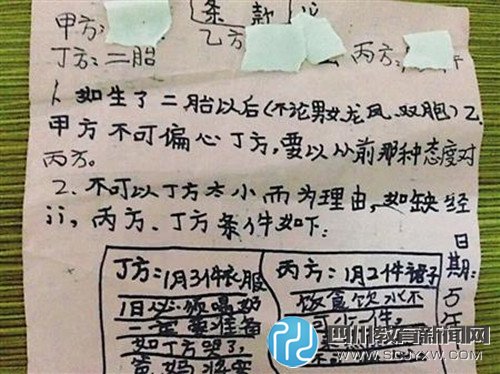 条款
甲方:
乙方
丙方:
丁方:二胎
1、如生了二胎以后(不论男女龙凤,双胞)乙
甲方不可偏心丁方,要以从前那种态度对
丙方。
2、不可以丁方太小而为理由,如缺经
济,丙方、丁方条件如下:
丁方:1月3件衣服
1日必须喝奶
一定要准备
如丁方哭了,
爸妈
丙方:1月2件裙子
饭盒饮水不
可少一件,
日期:万年
四川教育新闻网
www.scjyxw.com